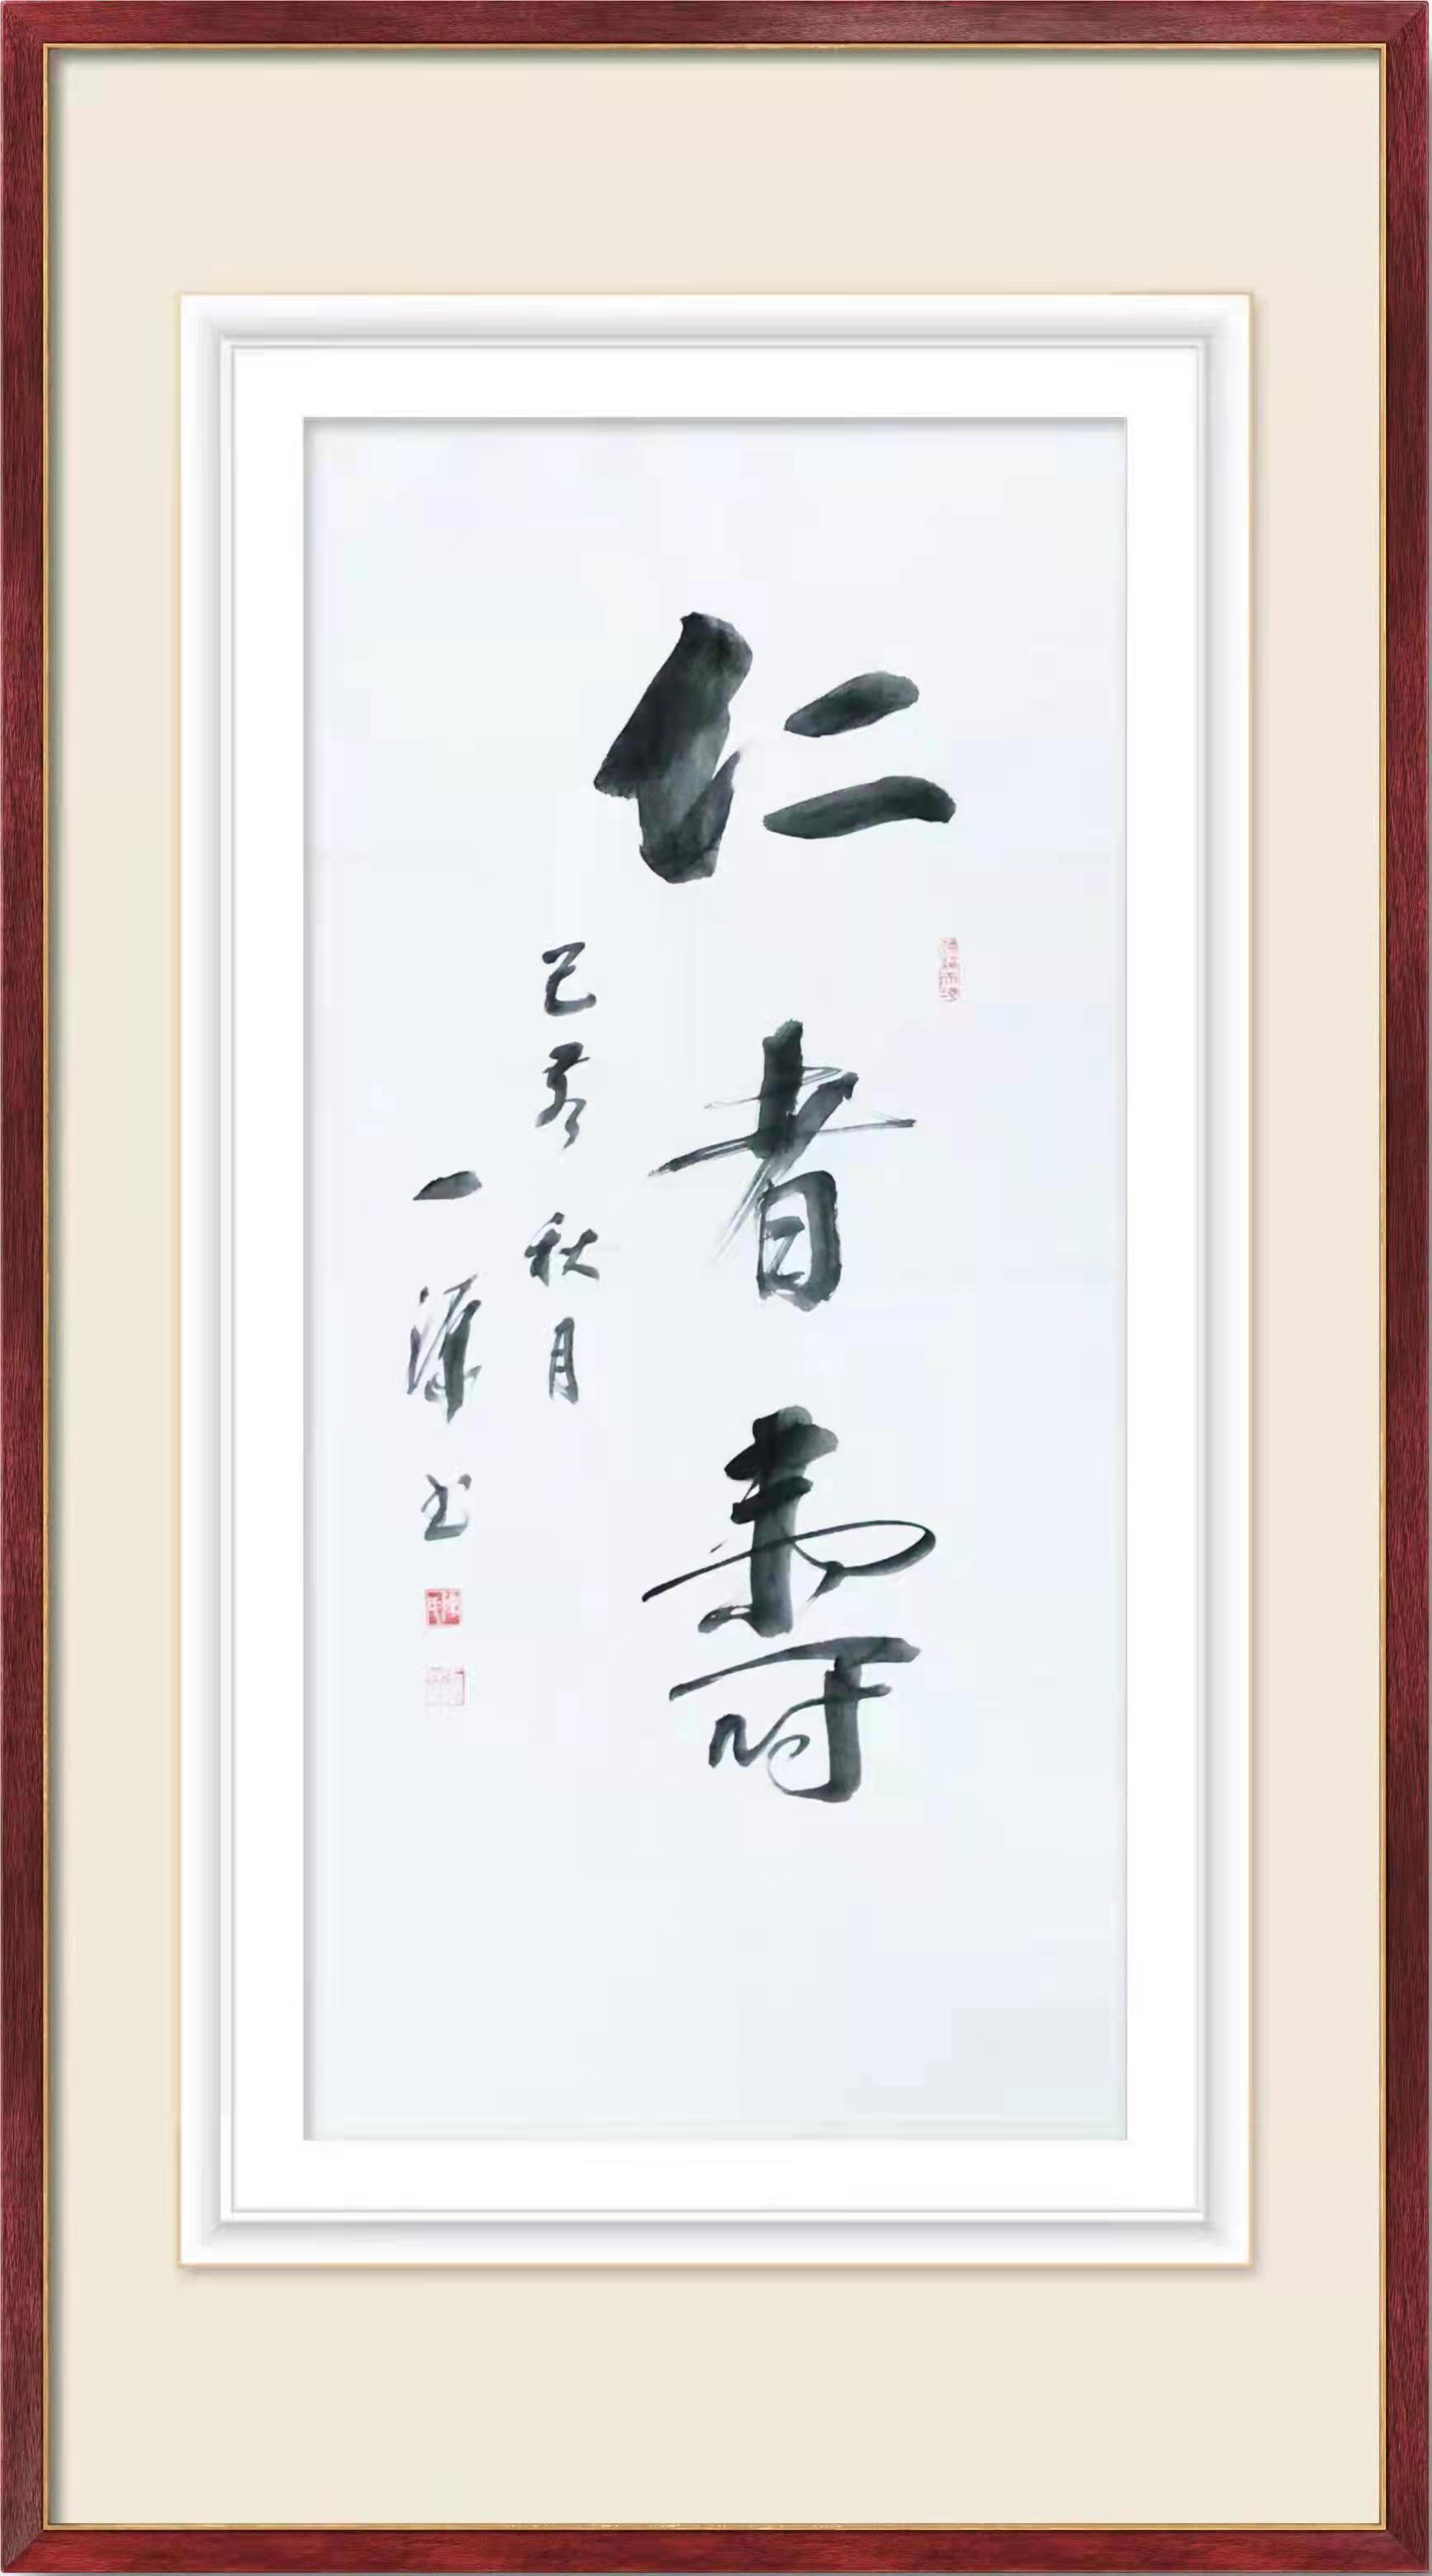 仁者壽
己亥秋月
一源书